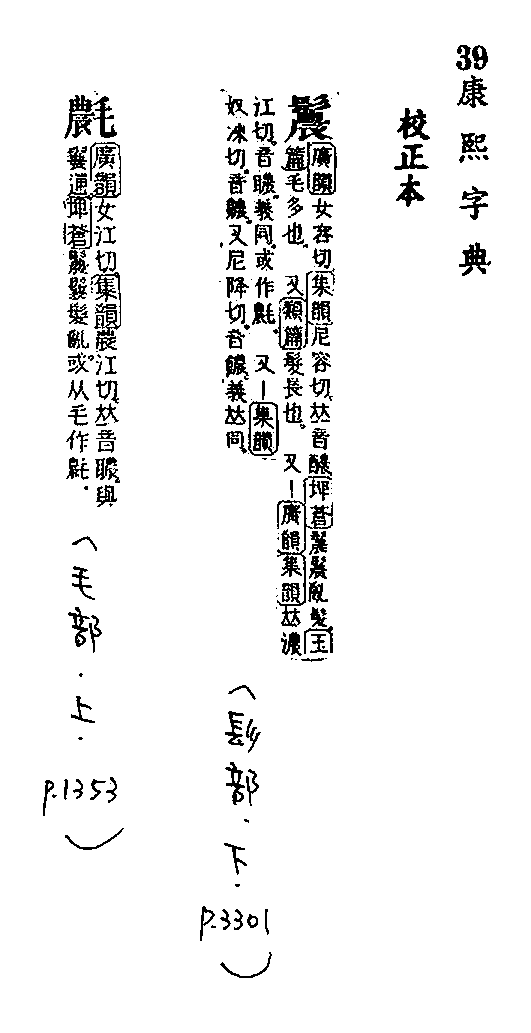 39康熙字典
校正本
鬞
廣韻女容切集韻尼容切𠀤音醲埤蒼鬞鬆亂髮玉
篇毛多也又類篇髮長也又一廣韻集韻𠀤濃
江切音䁸義同或作氄又一集韻
奴凍切音齈又尼降切音䁸義𠀤同
廣韻女江切集韻農江切𠀤音䁸與
鬞通埤蒼鬞鬆髮亂或从毛作
(毛部.上.
p.1353)
(髟部.下.
p.3301)